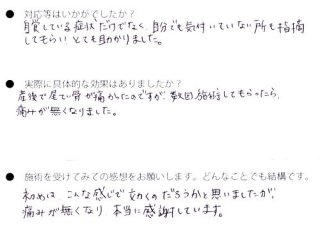 ● 対応等はいかがでしたか？
自覚している症状だけでなく、自分でも気付いていない所も指摘
してもらいとても助かりました。
● 実際に具体的な効果はありましたか？
産後で尾てい骨が痛かったのですが、数回施術してもらったら、
痛みが無くなりました。
● 施術を受けてみての感想をお願いします。どんなことでも結構です。
初めは、こんな感じで効くのだろうかと思いましたが、
痛みが無くなり、本当に感謝しています。